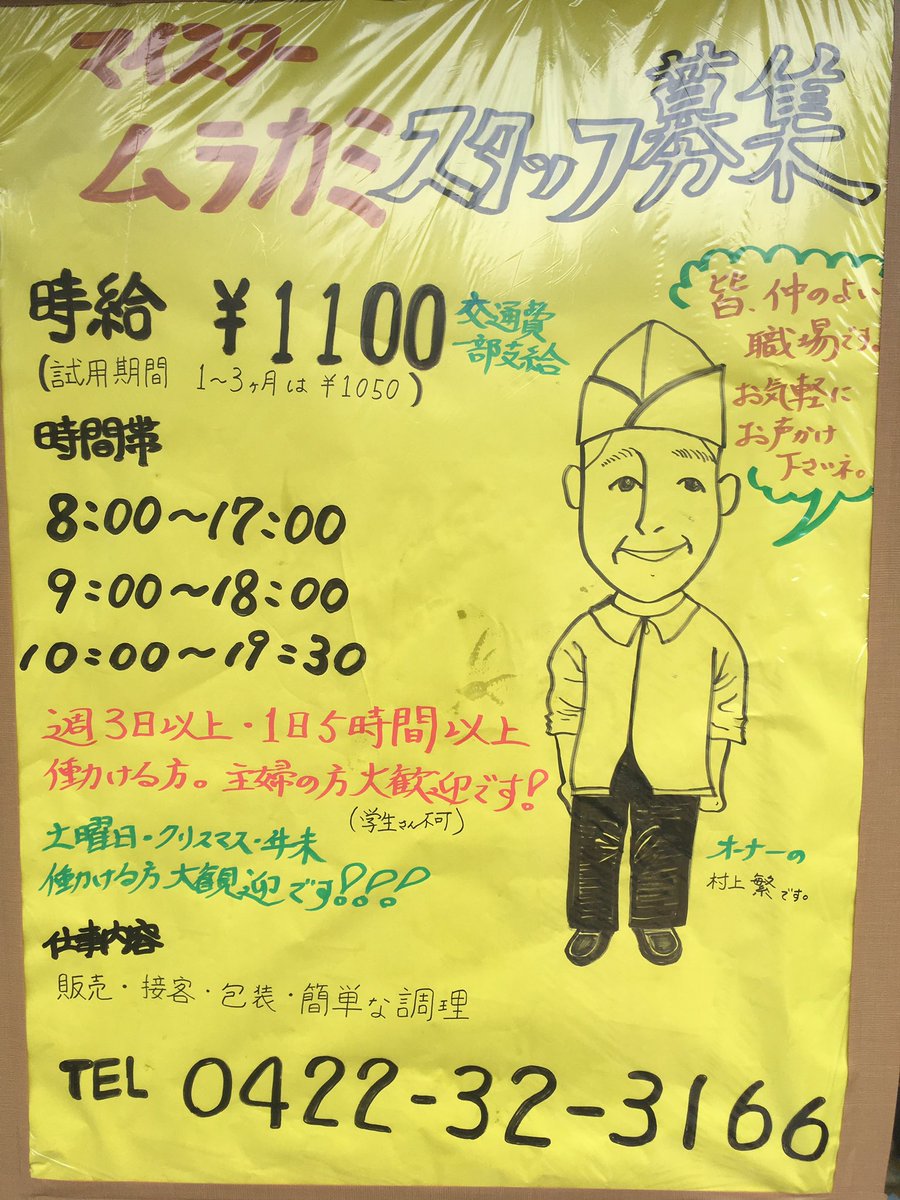 マイスター
ムラカミスタッフ募集
時給 ¥1100
交通費
部支給
(試用期間 1～3ヶ月は¥1050)
時間帯
8:00～17:00
9:00～18:00
10:00～19:30
皆、仲のよい
職場です。
お気軽に
お声かけ
下マツネ。
週3日以上・1日5時間以上
働ける方。主婦の方大歓迎です!
(学生さん不可)
土曜日・クリスマス・年末
働ける方大観迎です!!!
オーナーの
村上繁です。
仕事内容
販売・接客・包装・簡単な調理
TEL 0422-32-3166